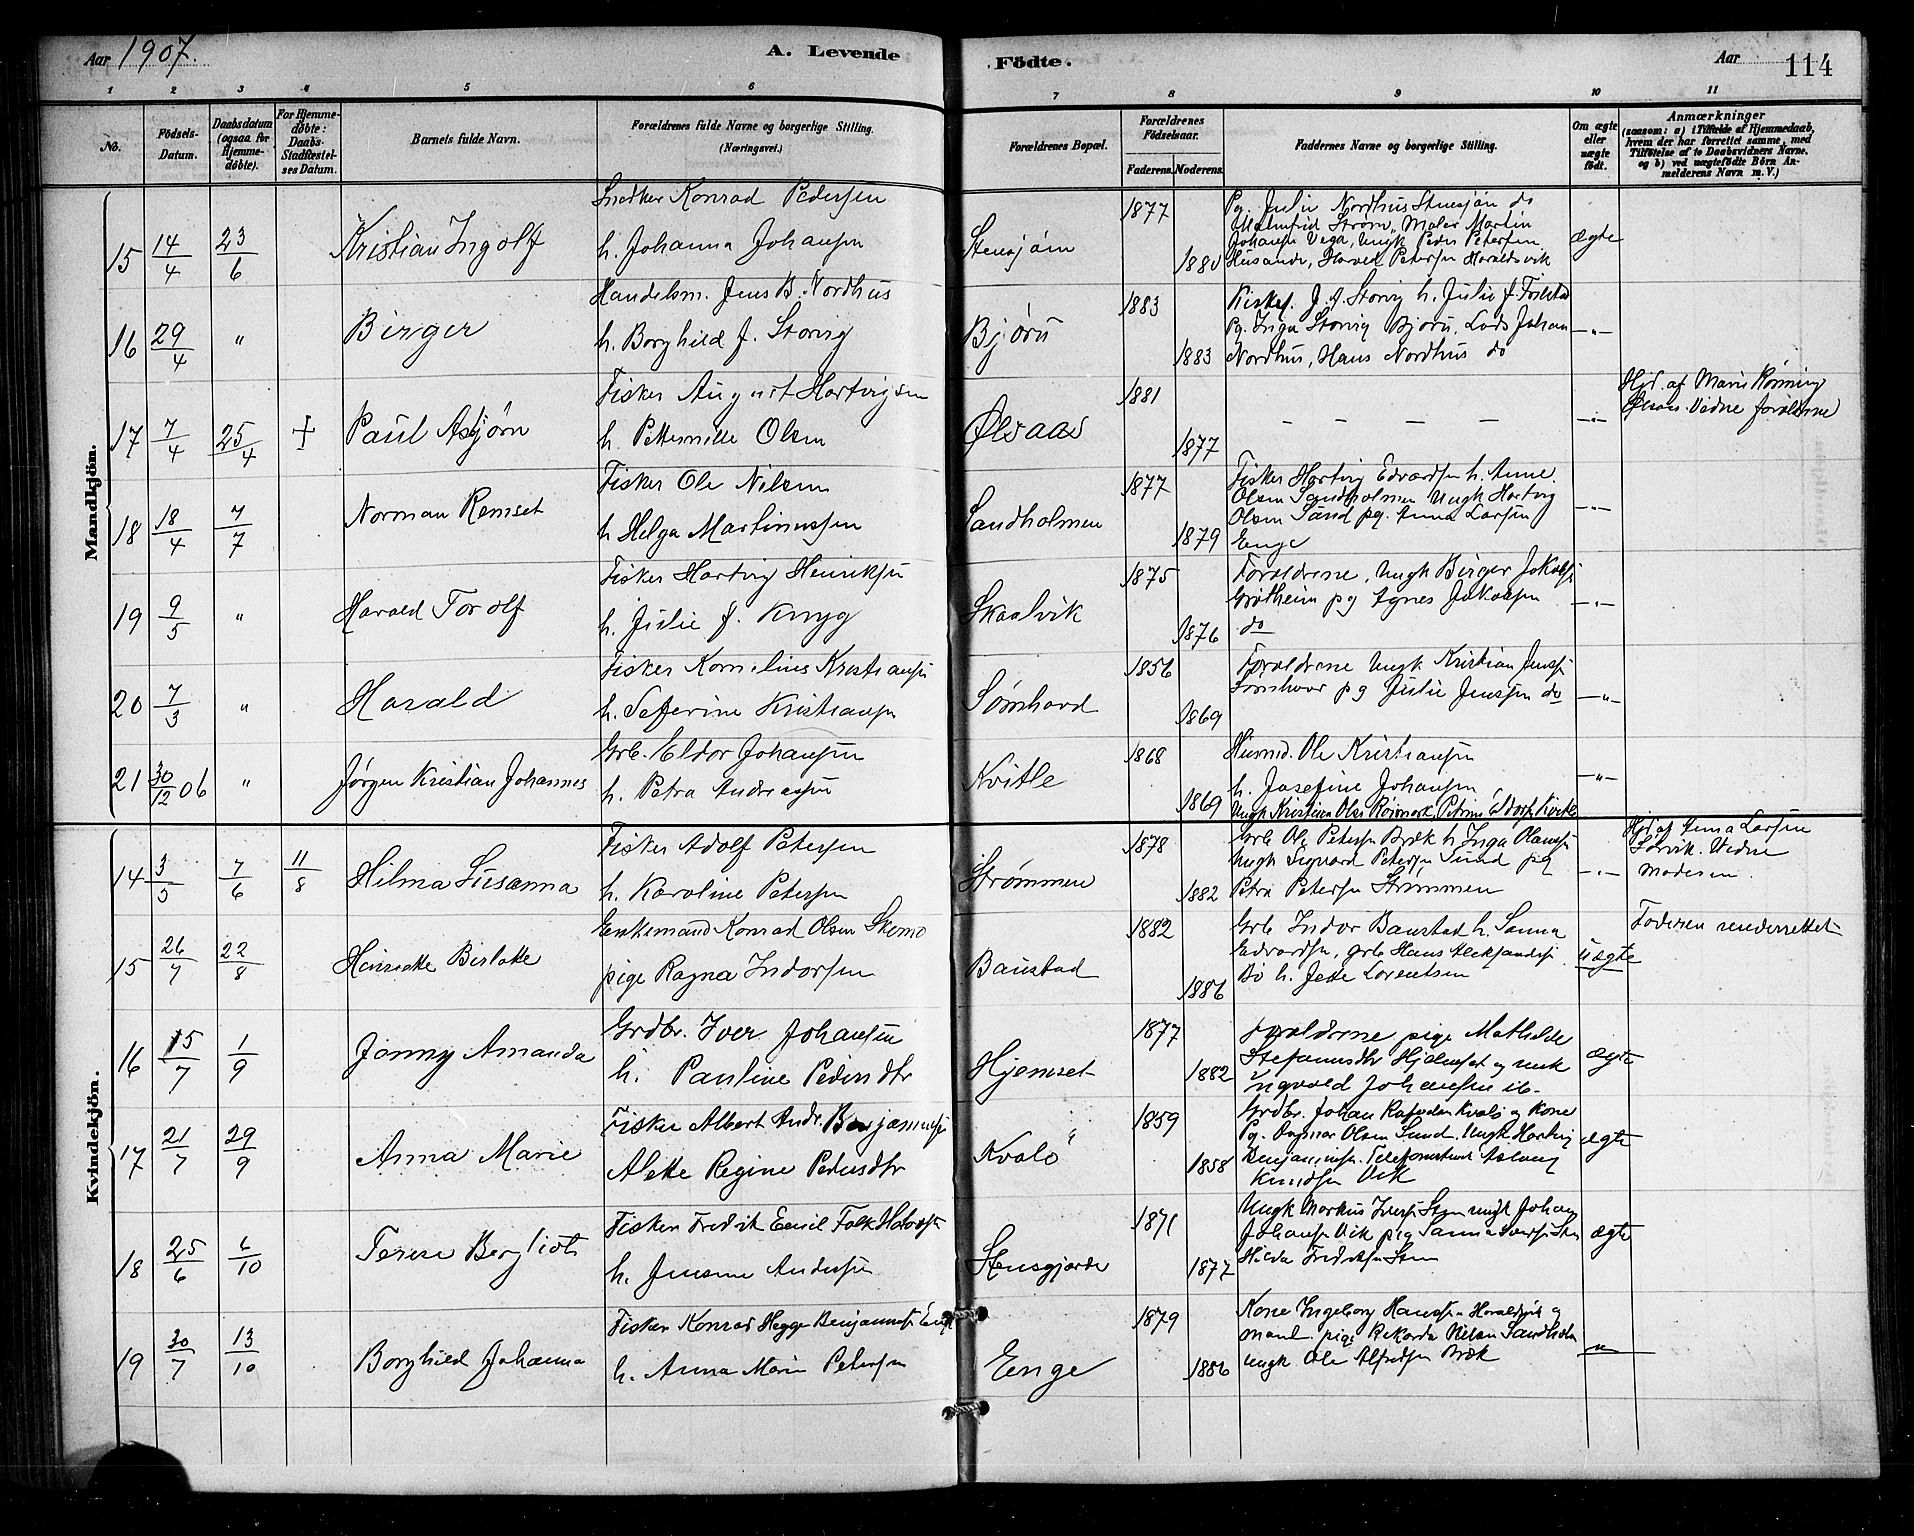 Aar 1907. A. Levende Födte. Aar 114
1 2 3 4 5 6 7 8 9 10 11
No. Födsels-Datum. Daabsdatum (ogsaa for Hjemme-döbte). For Hjemme-döbte: Daabs-Stadfæstel-ses Datum. Barnets fulde Navn. Forældrenes fulde Navne og borgerlige Stilling. (Næringsvei.) Forældrenes Bopæl. Forældrenes Födselsaar. Faderens. Moderens. Faddernes Navne og borgerlige Stilling. Om ægte eller uægte födt. Anmærkninger (saasom: a) i Tilfælde af Hjemmedaab, hvem der har forrettet samme, med Tilföielse af to Daabsvidners Navne, og b) ved uægtefödte Börn An-melderens Navn m. V.)
Mandkjön.
15 14/4 23/6 Kristian Ingolf
Snedker Konrad Pedersen
h. Johanna Johansen
Stensjøen 1877 1880
Pg. Julie Nordhus Stensjøn do
Malmfrid Strøm, Maler Martin
Johansen Vega, Ungk Peder Petersen
Husande, Harald Petersen Haraldsvik
ægte
16 29/4 " Birger
Handelsm. Jens B. Nordhus
h. Borghild f. Storvig
Bjørn 1883 1883
Kirkes. J. J. Storvig h. Julie f.
Pg. Inga Storvig Bjørn, Lods Johan
Nordhus, Hans Nordhus do
—"—
17 7/4 25/4 + Paul Asbjørn
Fisker August Hartvigsen
h. Petternille Olsen
Ølsaas 1881 1877
— — — — —
—"—
Hjd. af Marie Rønning
Ølsaas. Vidne forældrene
18 18/4 7/7 Norman Remset
Fisker Ole Nilsen
h Helga Martinussen
Sandholmen 1877 1879
Fisker Hartvig Edvardsen h. Anne
Olsen Sandholmen Ungk Hartvig
Olsen Sund pg. Anna Larsen
Enge
—"—
19 9/5 " Harald Torolf
Fisker Hartvig Henriksen
h. Julie f. Knyg
Skaalvik 1875 1876
Forældrene, Ungk Birger Jakobs
Grøtheim pg Agnes Jakobsen
do
—"—
20 7/3 " Harald
Fisker Kornelius Kristiansen
h. Seferine Kristiansen
Sømhovd 1856 1869
Forældrene Ungk Kristian Jenssen
Sømhovd pg Julie Jenssen do
—"—
21 30/12 06 " Jørgen Kristian Johannes
Grb. Eldor Johansen
h. Petra Andreassen
Kvitle 1868 1869
Husmd. Ole Kristiansen
h. Josefine Johansen
Ungk Kristian Olsen Petrine Eldors Kvitle
—"—
Kvindekjön.
14 3/5 7/6 11/8 Hilma Susanna
Fisker Adolf Petersen
h. Karoline Petersen
Strømmen 1878 1882
Grb Ole Petersen Bræk h Inga Olausen
Ungk Sigvard Petersen Sund pg
Petra Petersen Strømmen
—"—
Hjd. af Anna Larsen
Sørvik. Vidne
Moderen.
15 26/7 22/8 Henriette Berlotte
Enkemand Konrad Olsen Skomo
pige Ragna Indorsen
Baustad 1882 1886
Grb Indor Baustad h. Sanna
Edvardsen, grb Hans Aleksandersen
Bø h. Jette Lorentsen
uægte
Faderen underrettet
16 15/7 1/9 Jonny Amanda
Grdbr. Iver Johansen
h. Pauline Pedersdtr
Hjemset 1877 1882
Forældrene pige Mathilde
Stefansdtr Hjelmset og unk
Ingvald Johansen ib.
ægte
17 21/7 29/9 Anna Marie
Fisker Albert Andr. Benjaminsen
Alette Regine Pedersdtr
Kvalø 1859 1858
Grdbr. Johan Kvalø og Kone
Pg. Dagmar Olsen Sund. Ungk Hartvig
Benjaminsen. Telefonistinde Aslaug
Knudsen Vik
ægte
18 25/6 6/10 Terese Bergliot
Fisker Fredrik Emil Falk
h. Jensine Andersen
Stensgjærde 1871 1877
Ungk Markus Iversen Sten ungk Johan
Johansen Vik pig Sanna Iversen Sten
Hilda Fredriksen Sten
ægte
19 30/7 13/10 Borghild Johanna
Fisker Konrad Hegge Benjaminsen Enge
h. Anna Marie Petersen
Enge 1879 1886
Kone Ingeborg Hansen Haraldsvik og
mand. pige Rikarda Nilsen Sandholm
Ungk Ole Alfredsen Bræk
—"—